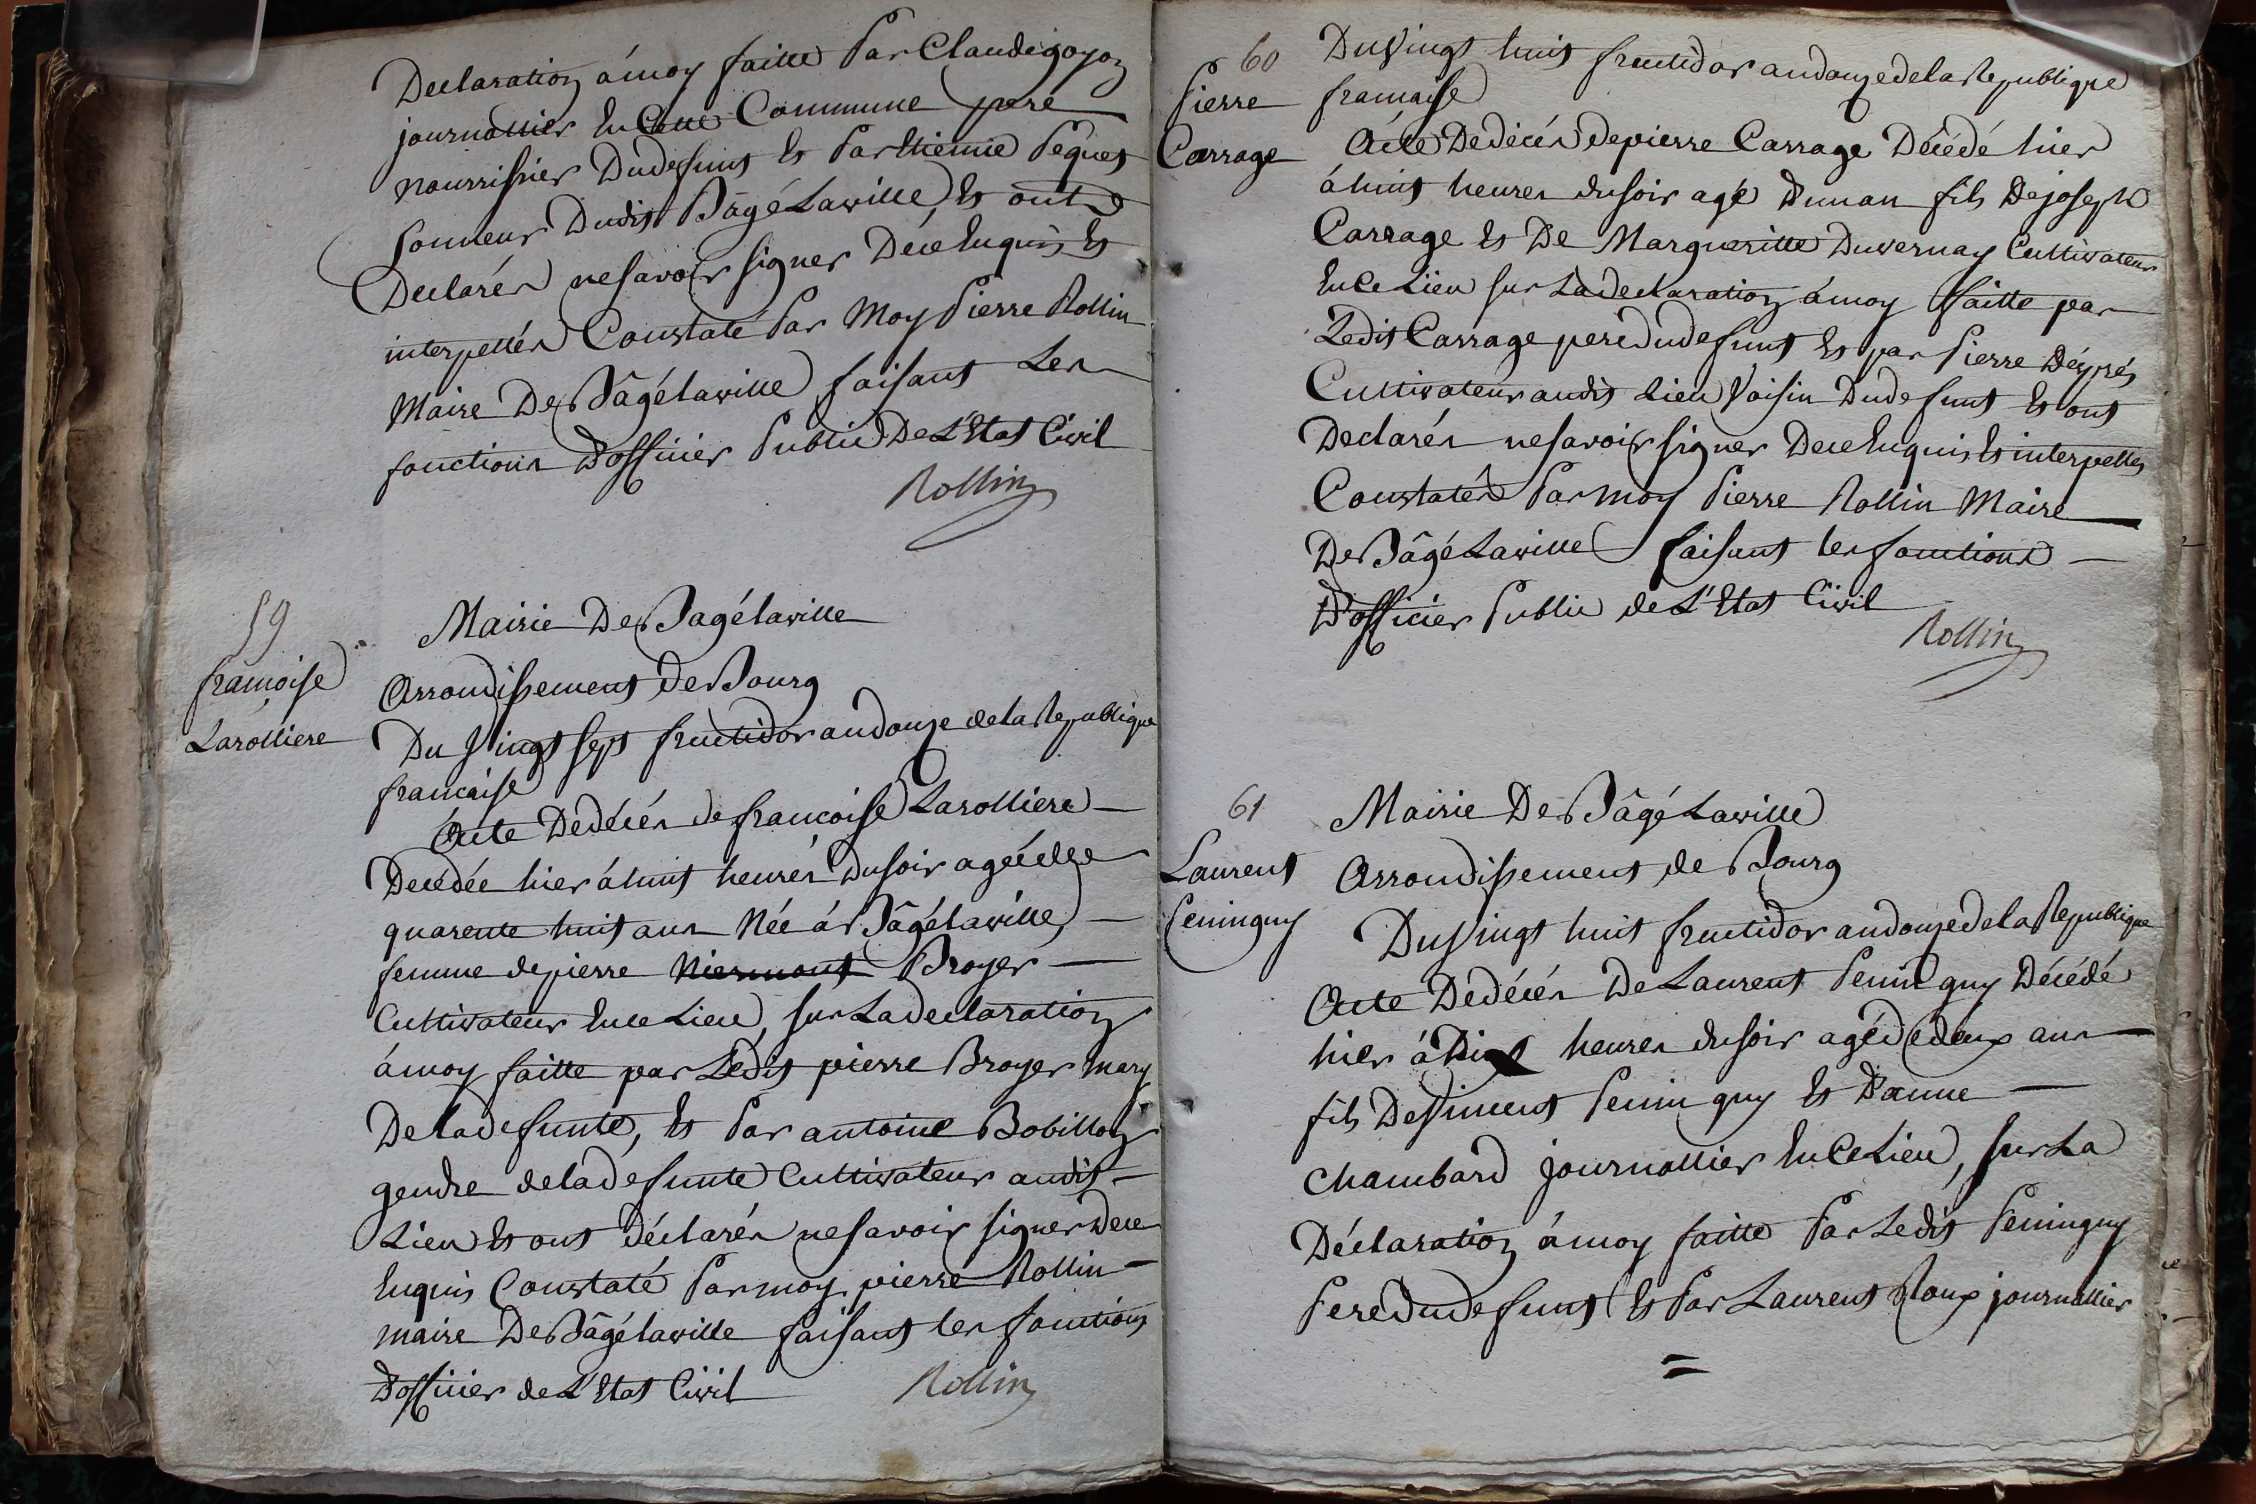 Declaration á moy faitte Par Claude goyon
journallier En Cette Commune pere
nourrissier Dudefunt Et Par Etienne Pêquet
Sonneur Dudit Bâgé Laville, Et ont
Declarés ne savoir signer De ce Enquis Et
interpellés Constaté Par Moy Pierre Rollin
Maire De Bâgélaville faisant Les
fonctions D'officier Public De L'Etat Civil
Rollin
59
françoise
Larolliere
Mairie De Bagélaville
Arrondissement de Bourg
Du Vingt sept fructidor an douze de la Republique
francaise
Acte Dedécés de francoise Larolliere
Decédée hier á huit heures Du soir agée de
quarente huit ans Née á Bâgélaville
femme de pierre Niermont Broyer
Cultivateur En ce Lieu, sur La declaration
á moy faitte par Ledit pierre Broyer mary
De la defunte, Et Par antoine Bobillon
gendre de la defunte Cultivateur audit
Lieu Et ont déclarés ne savoir signer De ce
Enquis Constaté Par moy pierre Rollin
maire De Bâgélaville faisant les fonctions
D'officier de L'Etat Civil
Rollin
60
Pierre
Carrage
Du Vingt huit fructidor an douze de la Republique
francaise
Acte De décés de pierre Carrage Décédé hier
á huit heures du soir agé D'un an fils De joseph
Carrage Et De Margueritte Duvernay Cultivateur
En ce Lieu sur La declaration á moy faitte par
Ledit Carrage pere du defunt Et par Pierre Déprés
Cultivateur audit Lieu Voisin Du defunt Et ont
Declarés ne savoir signer De ce Enquis Et interpellés
Constatés Par moy Pierre Rollin Maire
De Bâgé Laville faisant les fonctions
D'officier Public de L'Etat Civil
Rollin
61
Laurent
Peninguy
Mairie De Bâgé Laville
Arrondissement de Bourg
Du Vingt huit fructidor an douze de la Republique
Acte Dedécés De Laurent Peninguy Décédé
hier á heures du soir agé de deux ans
fils De Vincent Peninguy Et D'anne
Chambard journallier En Ce Lieu, sur La
Déclaration á moy faitte Par Ledit Peninguy
Pere Du defunt Et Par Laurent Roux journallier
=